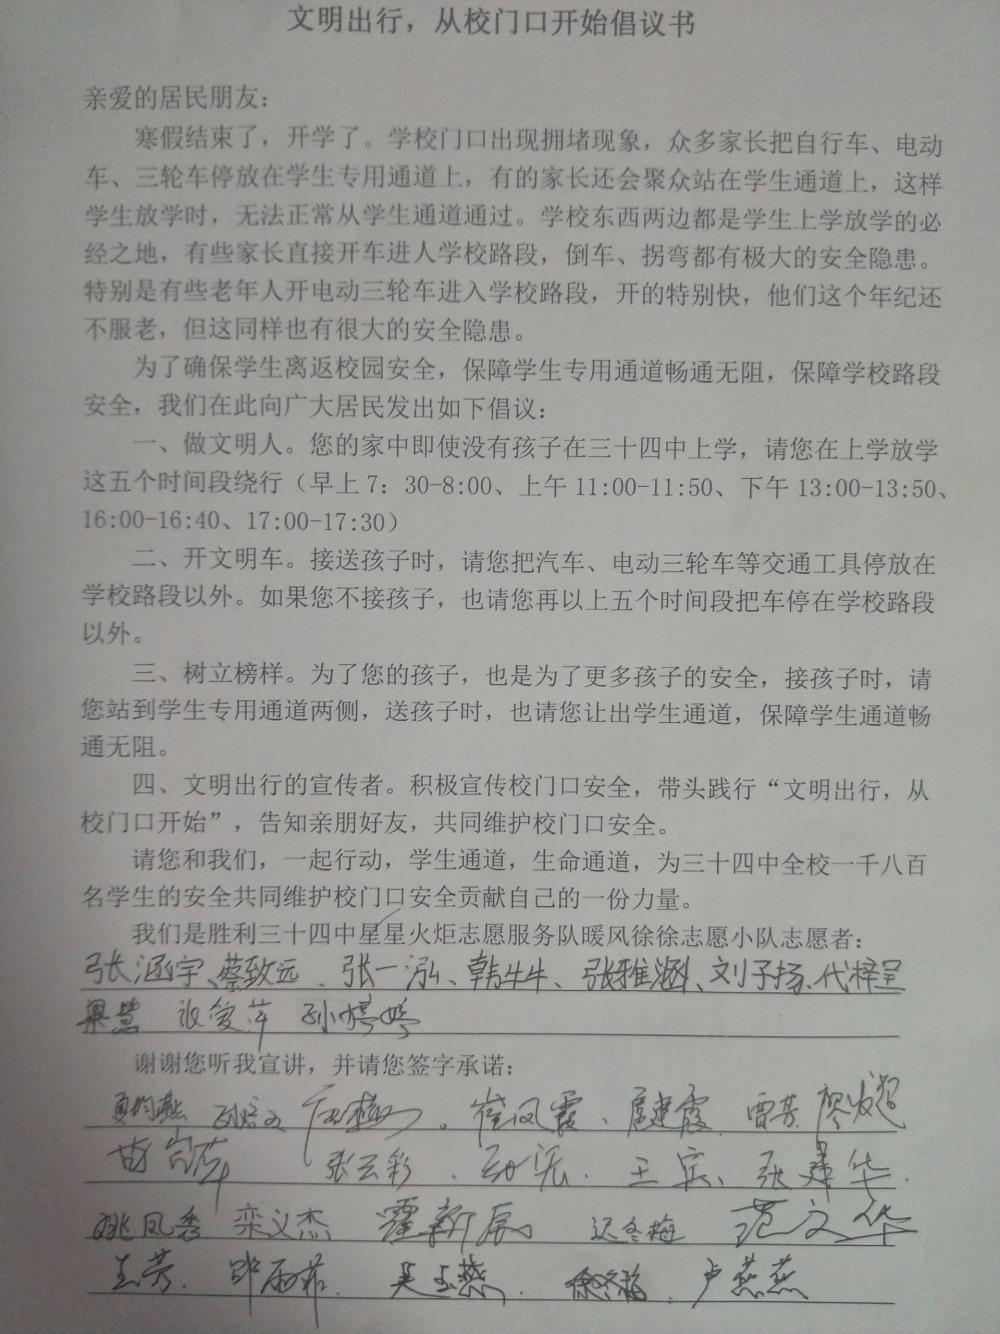 文明出行，从校门口开始倡议书
亲爱的居民朋友：
寒假结束了，开学了。学校门口出现拥堵现象，众多家长把自行车、电动
车、三轮车停放在学生专用通道上，有的家长还会聚众站在学生通道上，这样
学生放学时，无法正常从学生通道通过。学校东西两边都是学生上学放学的必
经之地，有些家长直接开车进人学校路段，倒车、拐弯都有极大的安全隐患。
特别是有些老年人开电动三轮车进入学校路段，开的特别快，他们这个年纪还
不服老，但这同样也有很大的安全隐患。
为了确保学生离返校园安全，保障学生专用通道畅通无阻，保障学校路段
安全，我们在此向广大居民发出如下倡议：
一、做文明人。您的家中即使没有孩子在三十四中上学，请您在上学放学
这五个时间段绕行（早上7：30-8:00、上午11:00-11:50、下午13:00-13:50、
16:00-16:40、17:00-17:30）
二、开文明车。接送孩子时，请您把汽车、电动三轮车等交通工具停放在
学校路段以外。如果您不接孩子，也请您再以上五个时间段把车停在学校路段
以外。
三、树立榜样。为了您的孩子，也是为了更多孩子的安全，接孩子时，请
您站到学生专用通道两侧，送孩子时，也请您让出学生通道，保障学生通道畅
通无阻。
四、文明出行的宣传者。积极宣传校门口安全，带头践行“文明出行，从
校门口开始”，告知亲朋好友，共同维护校门口安全。
请您和我们，一起行动，学生通道，生命通道，为三十四中全校一千八百
名学生的安全共同维护校门口安全贡献自己的一份力量。
我们是胜利三十四中星星火炬志愿服务队暖风徐徐志愿小队志愿者：
张涵宇、蔡致远、张一泓、韩牛牛、张雅涵、刘子扬、代梓呈
梁慧 孙婷婷
谢谢您听我宣讲，并请您签字承诺：
崔凤霞、扈建霞 雷芳
张云彩、王宾、张建华
姚凤香 栾义杰 霍新辰 迟冬梅 范文华
王芳、吴玉燕、卢燕燕